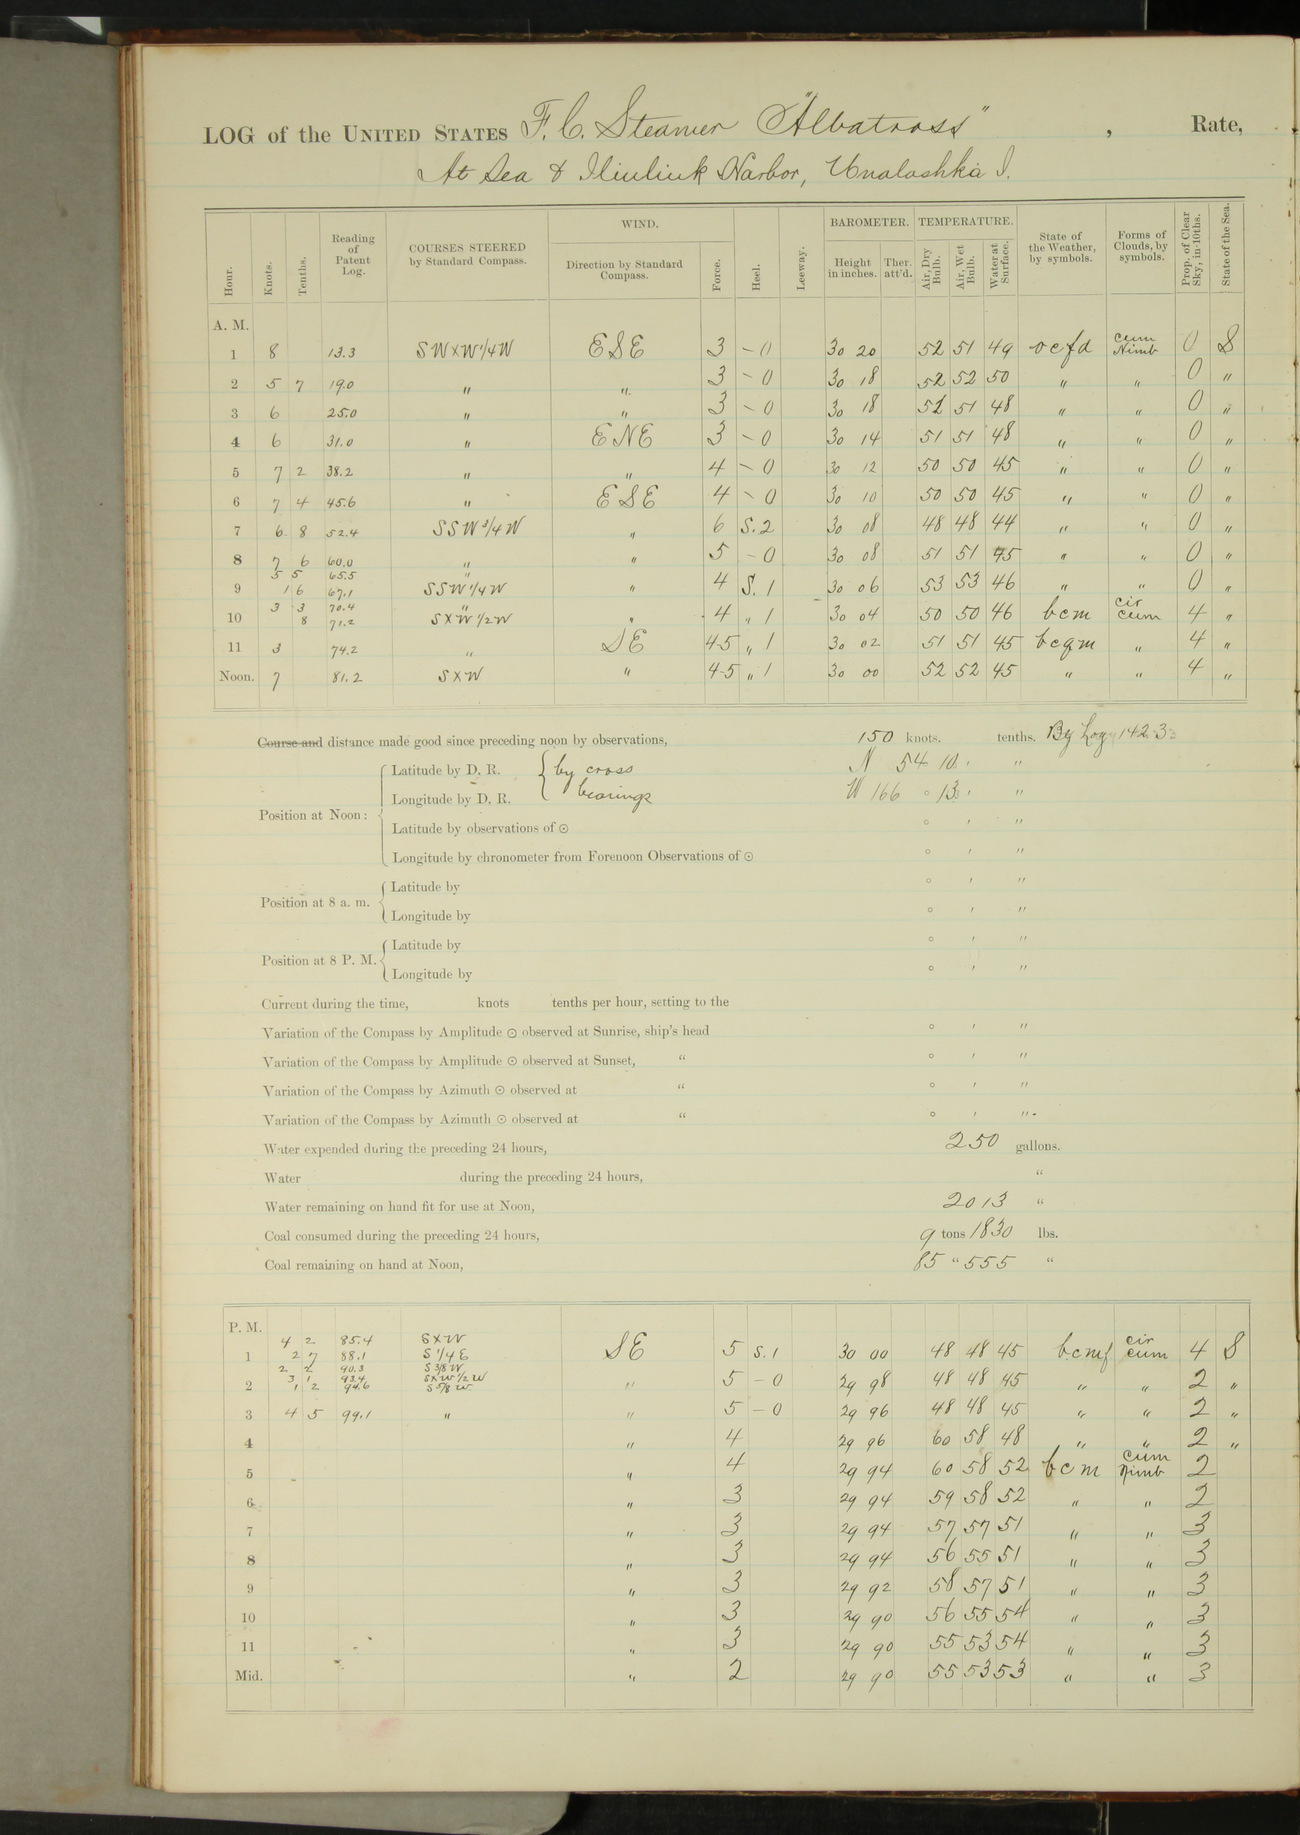 LOG of the UNITED STATES F. C. Steamer "Albatross", Rate,
At Sea & Iliuliuk Harbor, Unalashka I.
Hour. Knots. Tenths. Reading of Patent Log. COURSES STEERED by Standard Compass. WIND. Direction by Standard Compass. Force. Heel. Leeway. BAROMETER. Height in inches. Ther. att'd. TEMPERATURE. Air, Dry Bulb. Air, Wet Bulb. Water at Surface. State of the Weather, by symbols. Forms of Clouds, by symbols. Prop. of Clear Sky, in 10ths. State of the Sea.
A. M.
1 8 13.3 SWxW 1/4 W ESE 3 - 0 30 20 52 51 49 ocfd Cum Nimb 0 S
2 5 7 19.0 " " 3 - 0 30 18 52 52 50 " " 0 "
3 6 25.0 " " 3 - 0 30 18 52 51 48 " " 0 "
4 6 31.0 " ENE 3 - 0 30 14 51 51 48 " " 0 "
5 7 2 38.2 " " 4 - 0 30 12 50 50 45 " " 0 "
6 7 4 45.6 " ESE 4 - 0 30 10 50 50 45 " " 0 "
7 6 8 52.4 SSW 3/4 W " 6 S. 2 30 08 48 48 44 " " 0 "
8 7 6 60.0 " " 5 - 0 30 08 51 51 45 " " 0 "
5 5 65.5 "
9 1 6 67.1 SSW 1/4 W " 4 S. 1 30 06 53 53 46 " " 0 "
3 3 70.4 "
10 8 71.2 SxW 1/2 W " 4 " 1 30 04 50 50 46 bcm cir cum 4 "
11 3 74.2 " SE 4-5 " 1 30 02 51 51 45 bcqm " 4 "
Noon. 7 81.2 SxW " 4-5 " 1 30 00 52 52 45 " " 4 "
Course and distance made good since preceding noon by observations, 150 knots. tenths. By Log 142.3
Position at Noon:
Latitude by D. R. { by cross N 54 10 ' "
Longitude by D. R. bearings W 166 ° 13 ' "
Latitude by observations of ☉ ° ' "
Longitude by chronometer from Forenoon Observations of ☉ ° ' "
Position at 8 a. m.
Latitude by ° ' "
Longitude by ° ' "
Position at 8 P. M.
Latitude by ° ' "
Longitude by ° ' "
Current during the time, knots tenths per hour, setting to the
Variation of the Compass by Amplitude ☉ observed at Sunrise, ship's head ° ' "
Variation of the Compass by Amplitude ☉ observed at Sunset, " ° ' "
Variation of the Compass by Azimuth ☉ observed at " ° ' "
Variation of the Compass by Azimuth ☉ observed at " ° ' "
Water expended during the preceding 24 hours, 250 gallons.
Water during the preceding 24 hours, "
Water remaining on hand fit for use at Noon, 2013 "
Coal consumed during the preceding 24 hours, 9 tons 1830 lbs.
Coal remaining on hand at Noon, 85 " 555 "
P. M.
4 2 85.4 SxW
1 2 7 88.1 S 1/4 E SE 5 S. 1 30 00 48 48 45 bcmf cir cum 4 S
2 2 90.3 S 3/8 W
3 1 93.4 SxW 1/2 W
2 1 2 94.6 S 5/8 W " 5 - 0 29 98 48 48 45 " " 2 "
3 4 5 99.1 " " 5 - 0 29 96 48 48 45 " " 2 "
4 " 4 29 96 60 58 48 " " 2 "
5 " 4 29 94 60 58 52 bcm cum Nimb 2
6 " 3 29 94 59 58 52 " " 2
7 " 3 29 94 57 57 51 " " 3
8 " 3 29 94 56 55 51 " " 3
9 " 3 29 92 58 57 51 " " 3
10 " 3 29 90 56 55 54 " " 3
11 " 3 29 90 55 53 54 " " 3
Mid. " 2 29 90 55 53 53 " " 3